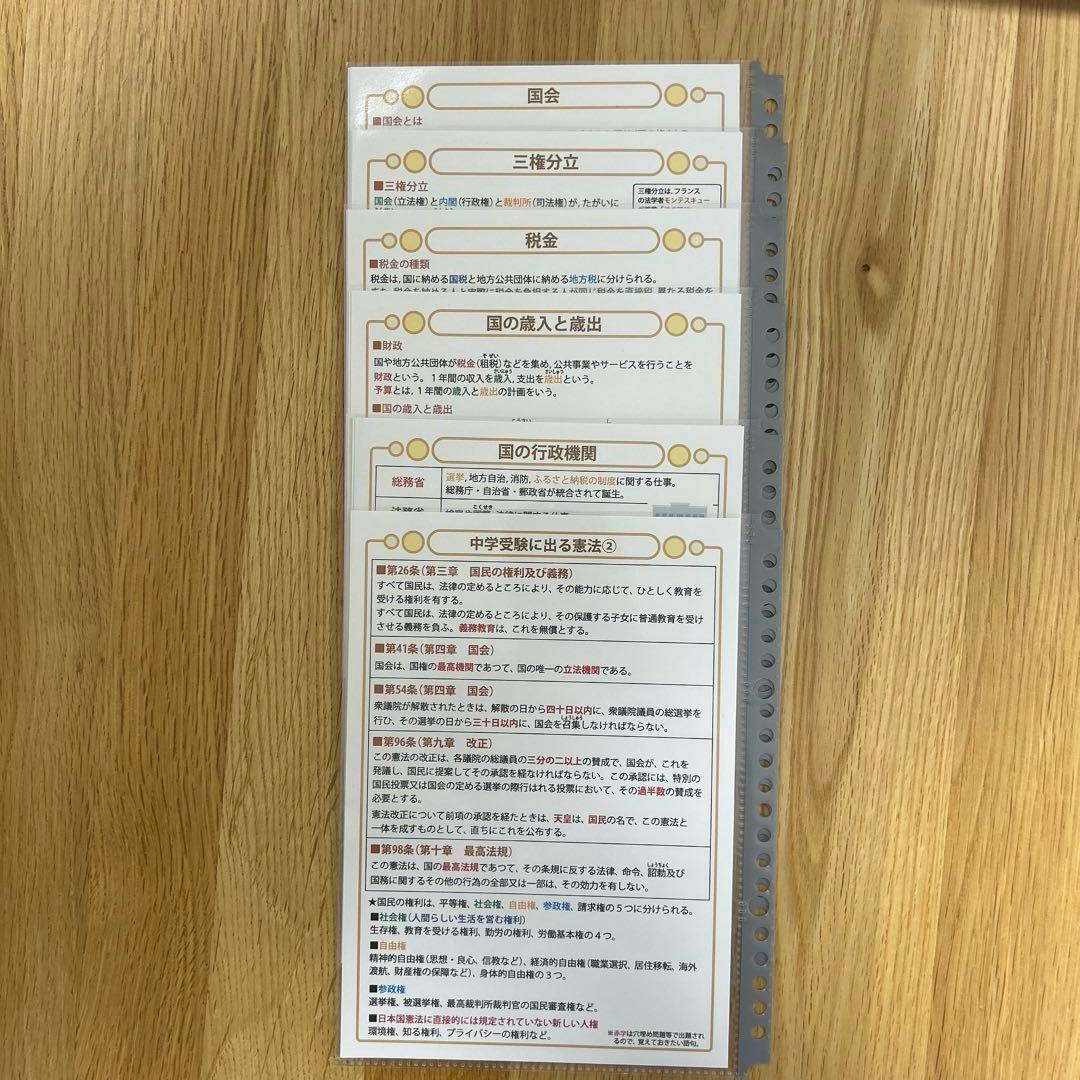 国会
■国会とは
三権分立
■三権分立
国会(立法権)と内閣(行政権)と裁判所(司法権)が,たがいに
三権分立は,フランス
の法学者モンテスキュー
税金
■税金の種類
税金は,国に納める国税と地方公共団体に納める地方税に分けられる。
また,税金を納める人と実際に税金を負担する人が同じ税金を直接税,異なる税金を
国の歳入と歳出
■財政
そぜい
国や地方公共団体が税金(租税)などを集め,公共事業やサービスを行うことを
さいにゅう さいしゅつ
財政という。1年間の収入を歳入,支出を歳出という。
予算とは,1年間の歳入と歳出の計画をいう。
■国の歳入と歳出
国の行政機関
総務省
選挙,地方自治,消防,ふるさと納税の制度に関する仕事。
総務庁・自治省・郵政省が統合されて誕生。
法務省
こくせき
中学受験に出る憲法②
■第26条(第三章 国民の権利及び義務)
すべて国民は、法律の定めるところにより、その能力に応じて、ひとしく教育を
受ける権利を有する。
すべて国民は、法律の定めるところにより、その保護する子女に普通教育を受け
させる義務を負ふ。義務教育は、これを無償とする。
■第41条(第四章 国会)
国会は、国権の最高機関であつて、国の唯一の立法機関である。
■第54条(第四章 国会)
衆議院が解散されたときは、解散の日から四十日以内に、衆議院議員の総選挙を
しょうしゅう
行ひ、その選挙の日から三十日以内に、国会を召集しなければならない。
■第96条(第九章 改正)
この憲法の改正は、各議院の総議員の三分の二以上の賛成で、国会が、これを
発議し、国民に提案してその承認を経なければならない。この承認には、特別の
国民投票又は国会の定める選挙の際行はれる投票において、その過半数の賛成を
必要とする。
憲法改正について前項の承認を経たときは、天皇は、国民の名で、この憲法と
一体を成すものとして、直ちにこれを公布する。
■第98条(第十章 最高法規)
しょうちょく
この憲法は、国の最高法規であつて、その条規に反する法律、命令、詔勅及び
国務に関するその他の行為の全部又は一部は、その効力を有しない。
★国民の権利は、平等権、社会権、自由権、参政権、請求権の5つに分けられる。
■社会権(人間らしい生活を営む権利)
生存権、教育を受ける権利、勤労の権利、労働基本権の4つ。
■自由権
精神的自由権(思想・良心、信教など)、経済的自由権(職業選択、居住移転、海外
渡航、財産権の保障など)、身体的自由権の3つ。
■参政権
選挙権、被選挙権、最高裁判所裁判官の国民審査権など。
■日本国憲法に直接的には規定されていない新しい人権
環境権、知る権利、プライバシーの権利など。
※赤字は穴埋め問題等で出題され
るので、覚えておきたい語句。